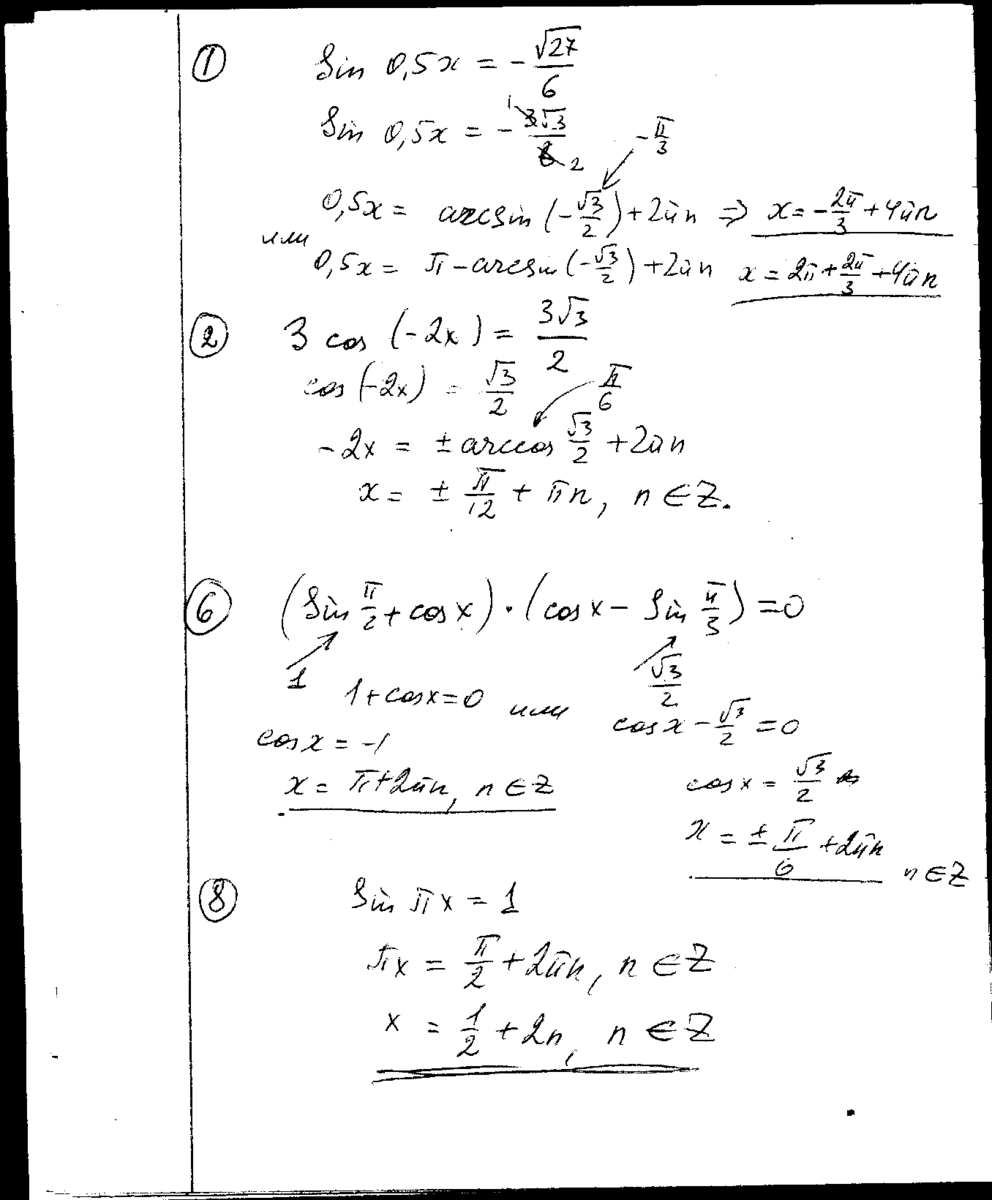 ① Sin 0,5x = -√27/6
Sin 0,5x = -3√3/6 1 2
-π/3
0,5x = arcsin (-√3/2) + 2πn ⇒ x = -2π/3 + 4πn
или
0,5x = π - arcsin (-√3/2) + 2πn x = 2π + 2π/3 + 4πn
② 3 cos (-2x) = 3√3/2
cos (-2x) = √3/2 π/6
-2x = ± arccos √3/2 + 2πn
x = ± π/12 + πn, n ∈ Z.
⑥ (Sin π/2 + cos x) · (cos x - Sin π/3) = 0
1 √3/2
1 + cos x = 0 или cos x - √3/2 = 0
cos x = -1
x = π + 2πn, n ∈ Z cos x = √3/2
x = ± π/6 + 2πn n ∈ Z
⑧ Sin πx = 1
πx = π/2 + 2πn, n ∈ Z
x = 1/2 + 2n, n ∈ Z